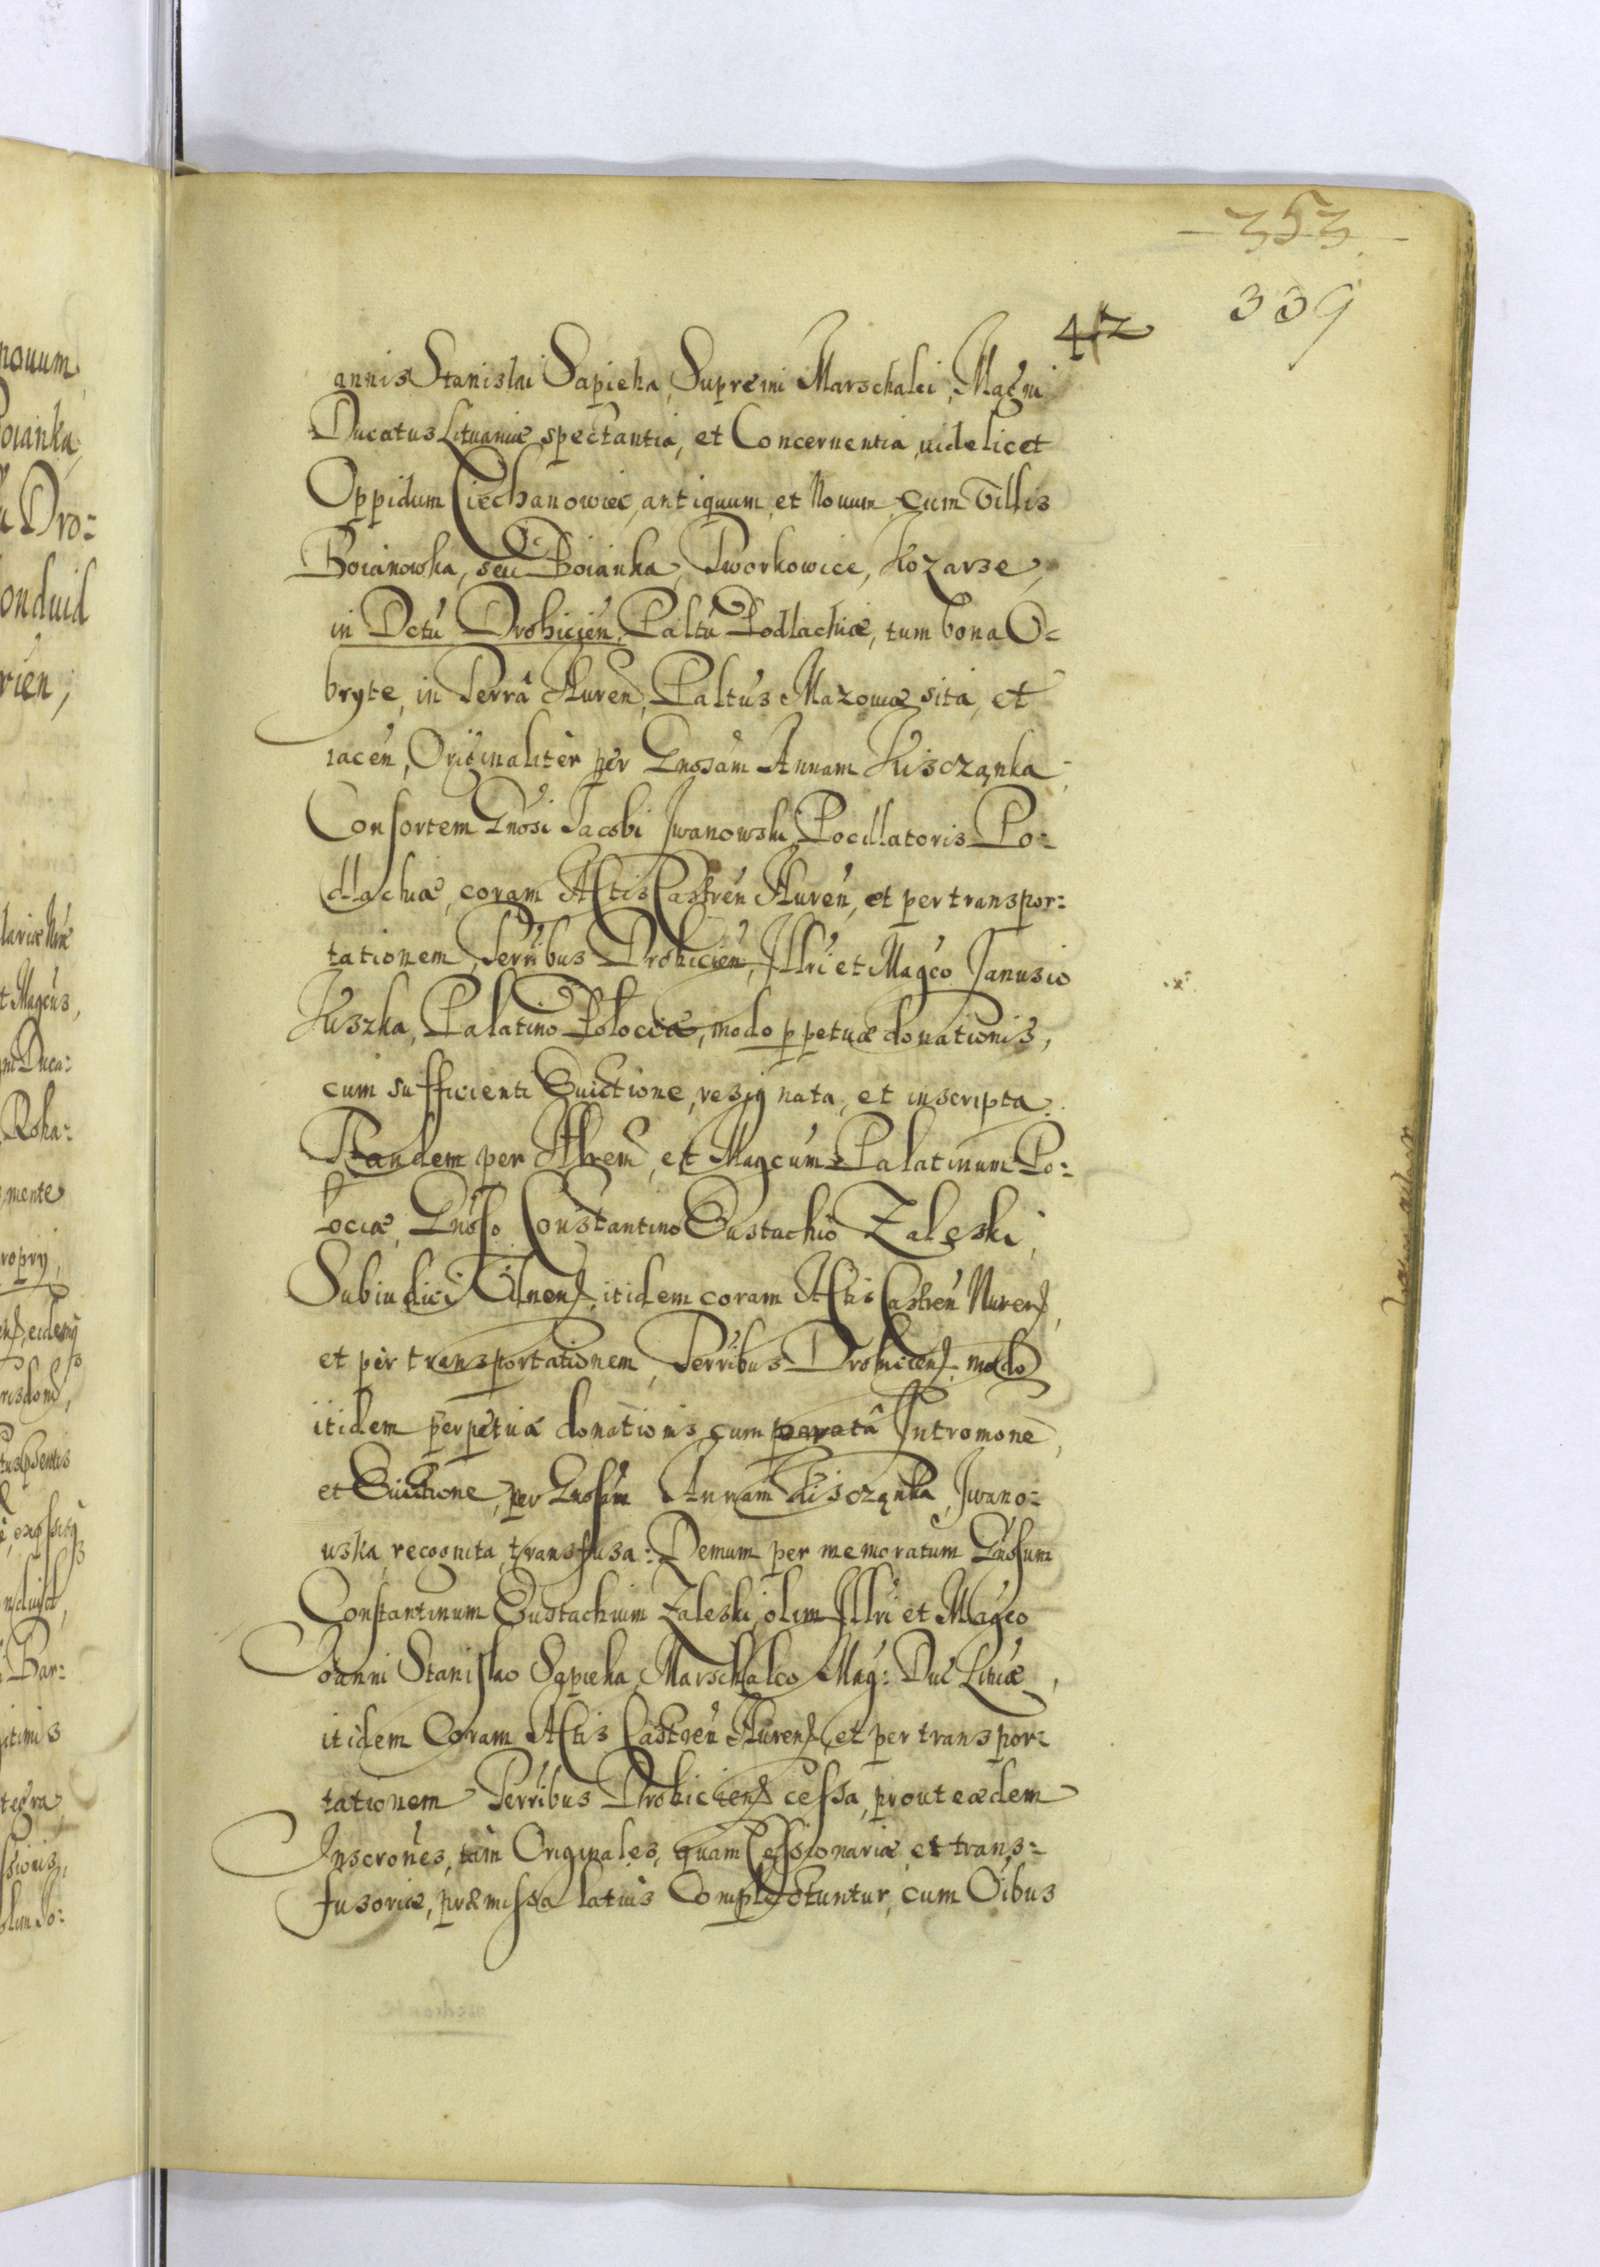 353
339
42
annis Stanislai Sapieha, Supremi Marschalci, Magni
Ducatus Lituaniæ spectantia, et Concernentia, uidelicet
Oppidum Ciechanowiec, antiquum, et Nouum, cum Villis
Boianowka, seu Boianka, Tworkowice, Kozarze,
in Dctu Drohicien, Paltu Podlachiæ, tum bona O-
bryte, in Terrâ Nuren, Paltus Mazouiæ sita, et
iacen, Originaliter per Gnosam Annam Kisczanka
Consortem Gnosi Jacobi Iwanowski, Pocillatoris Po-
dlachiæ, coram Actis Castren Nuren, et per transpor-
tationem, Terribus Drohicien, Illri et Magco Janusio
Kiszka, Palatino Polociæ, modo ppetuæ donationis,
cum sufficienti Euictione, resignata, et inscripta.
Tandem per Illrem, et Magcum Palatinum Po-
lociæ, Gnoso Constantino Eustachio Zaleski,
Subiudici Vilnen, itidem coram Actis Castren Nuren,
et per transportationem, Terribus Drohicien, modo
itidem perpetuæ donationis cum parata Intromone,
et Euictione, per Gnosam Annam Kisczanka, Iwano-
wska, recognita, transfusa: Demum per memoratum Gnosum
Constantinum Eustachium Zaleski, olim Illri et Magco
Joanni Stanislao Sapieha, Marschalco Mag: Duc Lituæ,
itidem Coram Actis Castren Nuren, et per transpor-
tationem Terribus Drohicien cessa, prout eædem
Inscrones, tam Originales, quam Cessionariæ, et trans-
fusoriæ, præmissa latius Complectuntur, cum Oibus